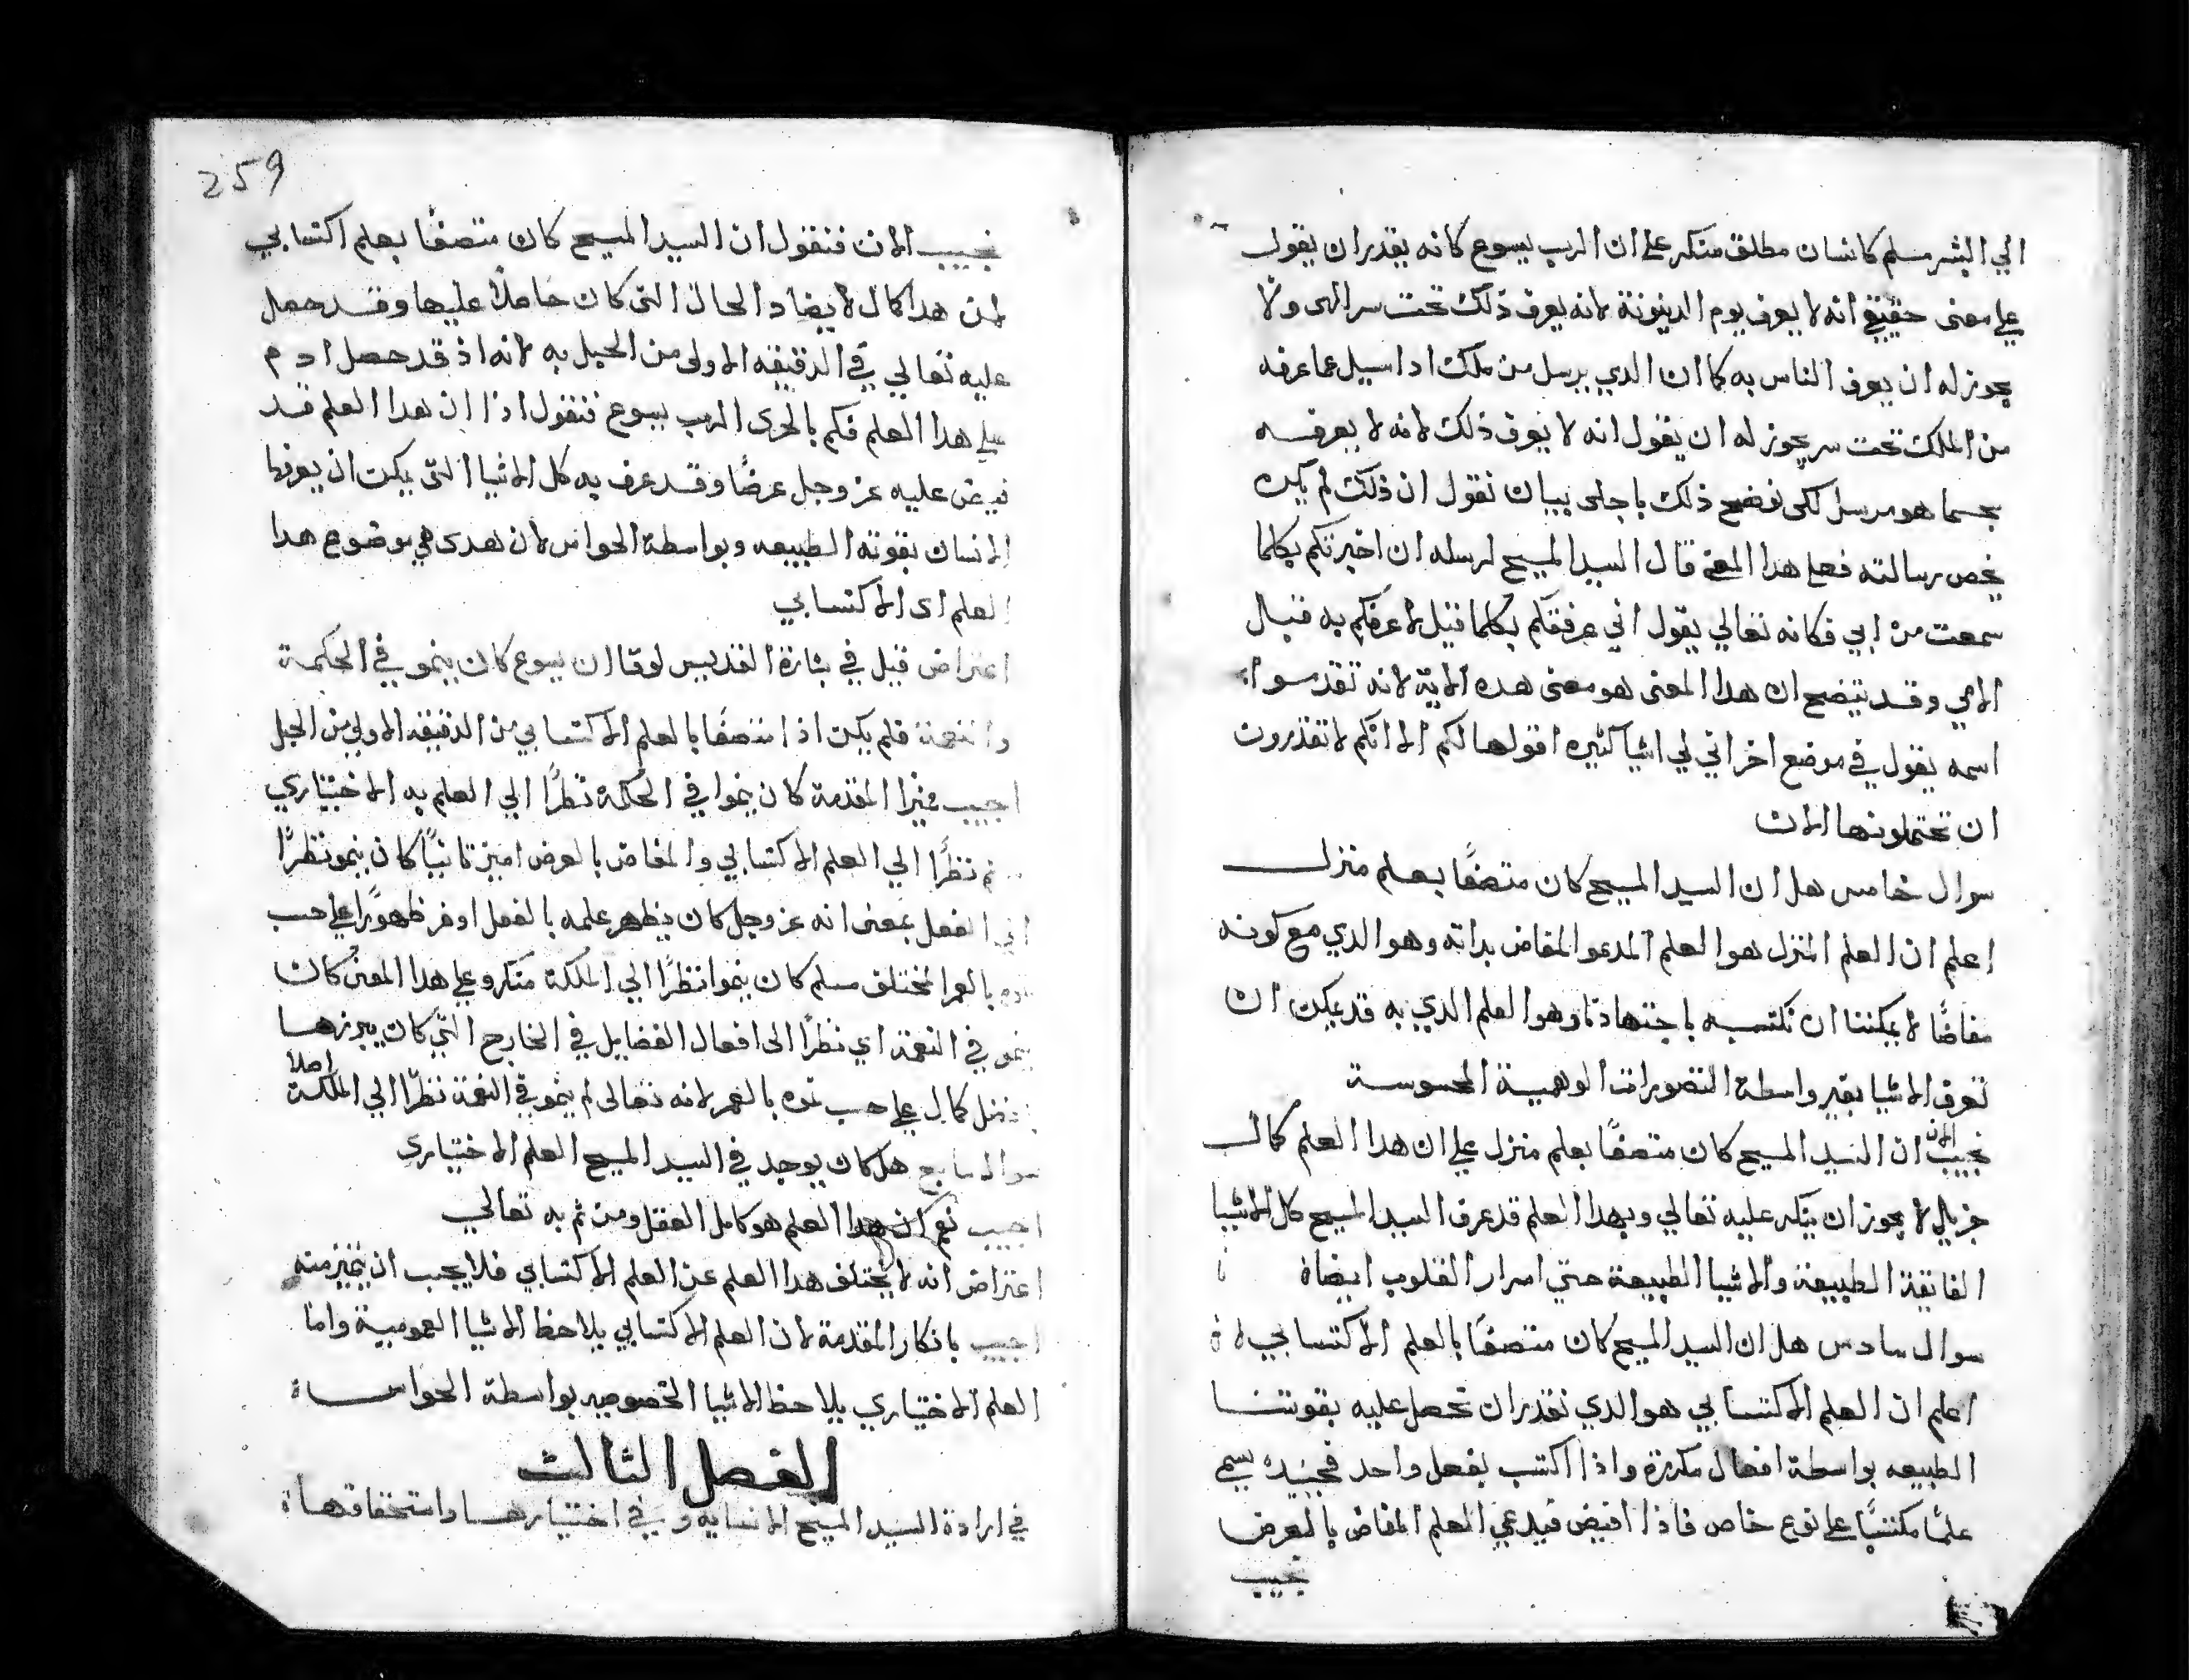 الي البشر مسلم كانسان مطلق منكر علي ان الرب يسوع كانه يقدر ان يقول
علي معنى حقيقي انه لا يعرف يوم الدينونة لانه يعرف ذلك تحت سر الهى ولا
يجوز له ان يعرف الناس به كما ان الدي يرسل من ملك ادا سيل عما عرفه
من الملك تحت سر يجوز له ان يقول انه لا يعرف ذلك لانه لا يعرفه
بحسبما هو مرسل لكى نوضح ذلك باجلى بيان نقول ان ذلك لم يكن
يخص رسالته فعلي هدا المعنى قال السيد المسيح لرسله ان اخبرتكم بكلما
سمعت من ابي فكانه تعالي يقول اني عرفتكم بكلما قيل لاعرفكم به قبال
الامي وقد يتضح ان هدا المعنى هو معنى هده الاية لانه تقدسوا
اسمه يقول في موضع اخر اني لي اشيا كثيره اقولها لكم الا انكم لا تقدرون
ان تحتملونها الان
سوال خامس هل ان السيد المسيح كان متصفًا بعلم منزل
اعلم ان العلم المنزل هو العلم المدعو المفاض بداته وهو الدي مع كونه
مفاضًا لا يمكننا ان نكتسبه باجتهادنا وهو العلم الدي به قد يمكن ان
تعرف الاشيا بغير واسطة التصورات الوهمية المحسوسة
نجيب الان ان السيد المسيح كان متصفًا بعلم منزل علي ان هدا العلم كمال
جزيل لا يجوز ان ينكر عليه تعالي وبهدا العلم قد عرف السيد المسيح كل الاشيا
الفايقة الطبيعة والاشيا الطبيعة حتي اسرار القلوب ايضاة
سوال سادس هل ان السيد المسيح كان متصفًا بالعلم الاكتسابي لا
اعلم ان العلم الاكتسابي هو الدي نقدر ان نحصل عليه بقوتنا
الطبيعه بواسطة افعال مكررة واذا اكتسب بفعل واحد فحينيد يسمي
علمًا مكتسبًا علي نوع خاص فاذا افيض فيدعي العلم المفاض بالعرض
نجيب
259
نجيب الان فنقول ان السيد المسيح كان متصفًا بعلم اكتسابي
لان هدا كمال لا يضاد الحال التى كان حاملًا عليها وقد حصل
عليه تعالي في الدقيقه الاولى من الحبل به لانه اذ قد حصل ادم
علي هدا العلم فكم بالحرى الرب يسوع فنقول اذا ان هدا العلم قد
فيض عليه عز وجل عرضًا وقد عرف به كل الاشيا التى يمكن ان يعرفها
الانسان بقوته الطبيعه وبواسطة الحواس لان هدى هي موضوع هدا
العلم اى الاكتسابي
اعتراض قيل في بشارة القديس لوقا ان يسوع كان ينمو في الحكمة
والنعمة فلم يكن اذا متصفًا بالعلم الاكتسابي من الدقيقه الاولي من الحبل
اجيب مميزا المقدمة كان ينموا في الحكمة نظرًا الي العلم به الاختياري
نظرًا الي العلم الاكتسابي والمفاض بالعرض اميز ثانيًا كان ينمو نظرًا
الي الفعل بمعنى انه عز وجل كان يظهر علمه بالفعل اوفر ظهورًا علي حسب
بالعمر المختلف مسلم كان ينموا نظرًا الي الملكة منكر وعلي هدا المعنى كان
ينمو في النعمة اي نظرًا الى افعال الفضايل في الخارج التي كان يبرزها
كمال علي حسب نموه بالعمر لانه تعالى لم ينمو في النعمة نظرًا الي الملكة اصلًا
سوال سابع هل كان يوجد في السيد المسيح العلم الاختيارى
اجيب نعم لان هدا العلم هو كامل العقل ومن ثم به تعالي
اعتراض انه لا يختلف هدا العلم عن العلم الاكتسابي فلا يجب ان يتميز منه
اجيب بانكار المقدمة لان العلم الاكتسابي يلاحظ الاشيا العمومية واما
العلم الاختياري يلاحظ الاشيا الخصوصيه بواسطة الحواس
الفصل الثالث
في ارادة السيد المسيح الانسانيه وفي اختيارها واستحقاقها